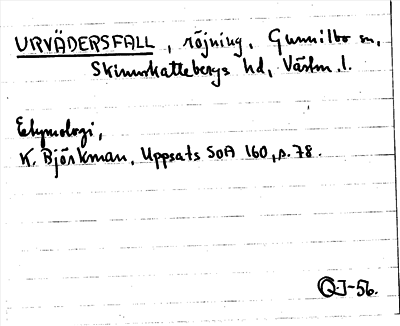 URVÄDERSFALL, röjning, Gunnilbo sn,
Skinnskattebergs hd, Västm. l.
Etymologi,
K. Björkman, Uppsats SOA 160, s. 78.
OJ-56.